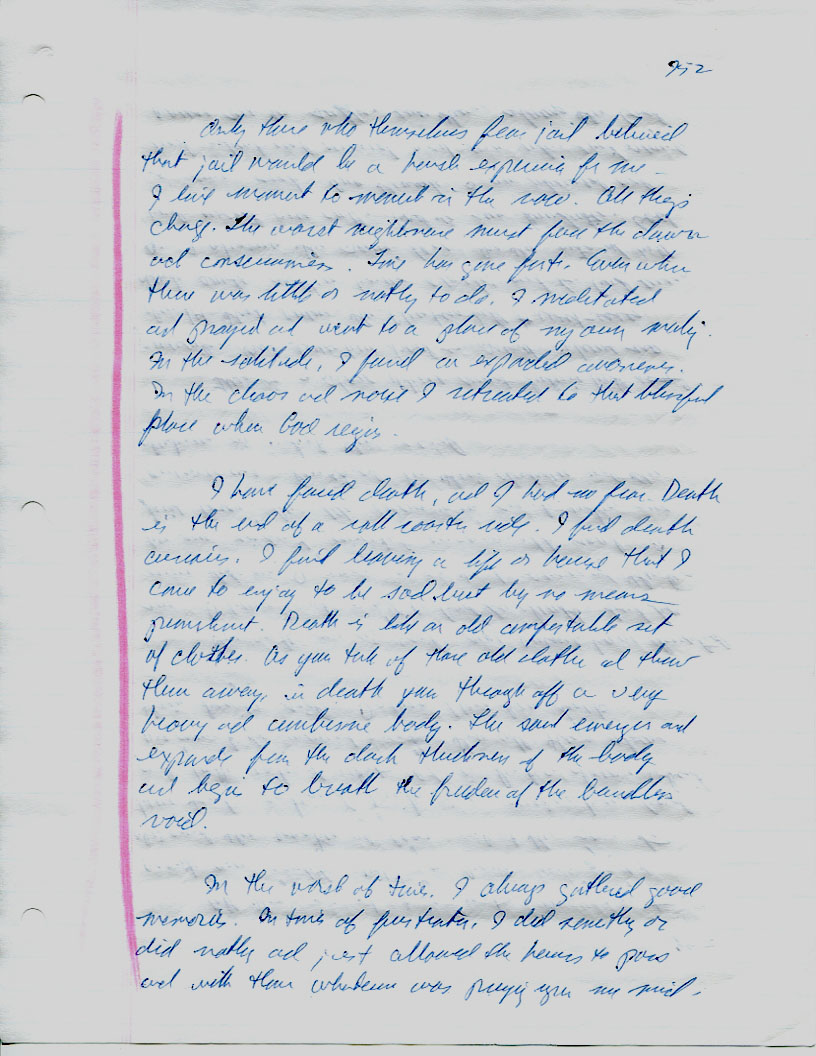 952
Only those who themselves fear jail believed
that jail would be a harsh experience for me.
I live moment to moment in the now. All things
change. The worst nightmare must face the dawn
and consciousness. Time has gone fast. Even when
there was little or nothing to do, I meditated
and prayed and went to a place of my own making.
In the solitude, I found an expanded awareness.
In the chaos and noise I retreated to that blissful
place where God reigns.
I have faced death, and I had no fear. Death
is the end of a roll coaster ride. I find death
curious. I find leaving a life or house that I
come to enjoy to be sad but by no means
punishment. Death is like an old comfortable set
of clothes. As you take off those old clothes and throw
them away, in death you through off a very
heavy and cumbersome body. The soul emerges and
expands from the dark thickness of the body
and begin to breath the freedom of the boundless
void.
In the worst of times, I always gathered good
memories. In times of frustration, I did something or
did nothing and just allowed the hours to pass
and with them whatever was preying upon my mind.